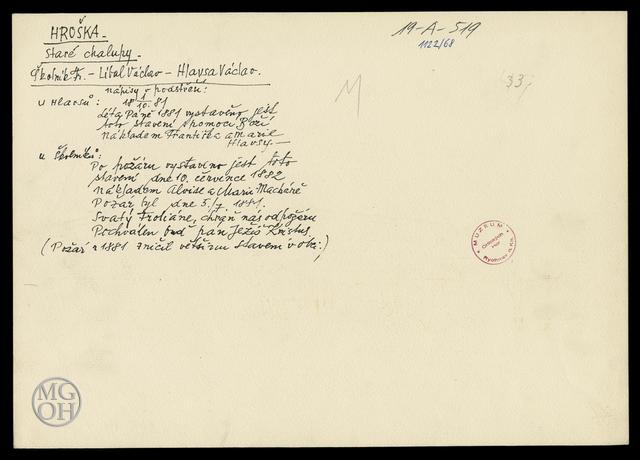 HROŠKA.
19-A-519
1122/68
Staré chalupy.
Školník Fr. - Líbal Václav - Hlavsa Václav.
M
33,
nápisy v podstřeší:
u Hlavsů: 18 1/10. 81
Léta Páně 1881 vystavěno jest
toto stavení s pomocí Boží
nákladem Františka a Marie
Hlavsy.—
u Školníků:
Po požáru vystavíno jest toto
stavení dne 10. července 1882
nákladem Aloise a Marie Macháně
Požár byl dne 5./7 1881.
Svatý Froliáne, chraň nás od požáru
Pochválen buď pán Ježíš Kristus.
(Požár r 1881 zničil většinu stavení v obci.)
MUZEUM
Orlických
hor
Rychnov n. Kn.
MG
OH